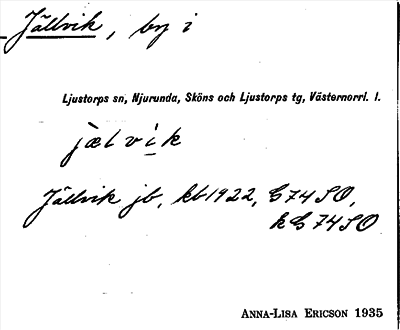 Jällvik, by i
Ljustorps sn, Njurunda, Sköns och Ljustorps tg, Västernorrl. l.
jælvik
Jällvik jb, kb1922, G74SO,
kG74SO
ANNA-LISA ERICSON 1935